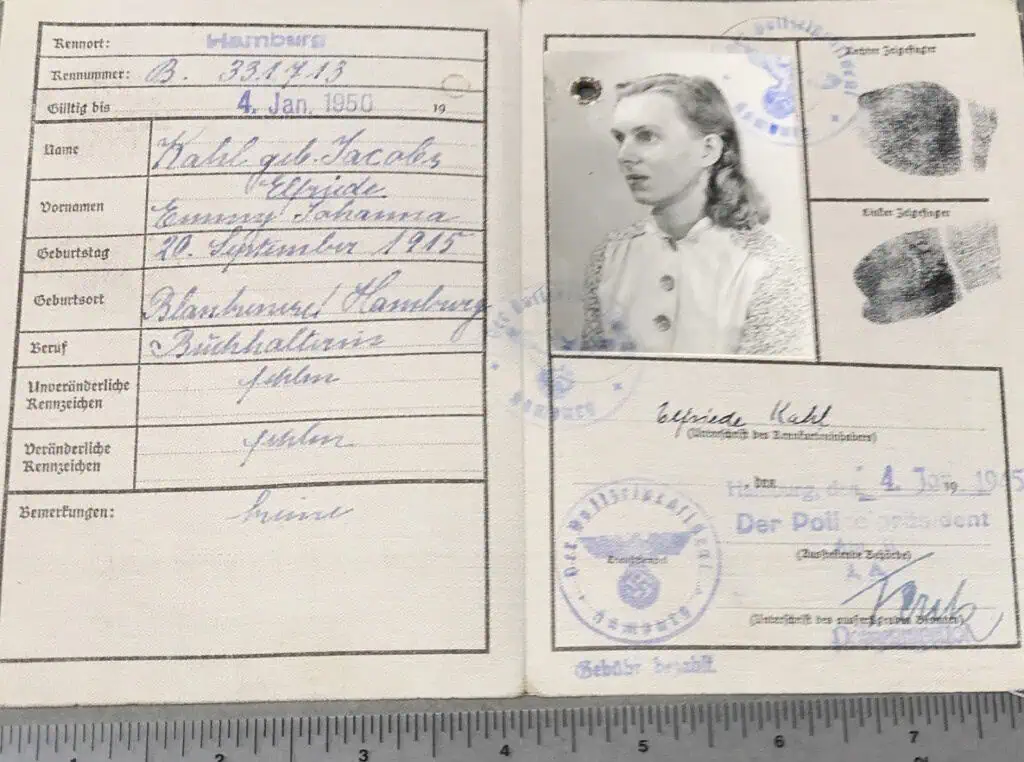 Kennort: Hamburg
Kennummer: B. 331713
Gültig bis 4. Jan. 1950 19
Name Kahl geb. Jacobs
Elfriede
Vornamen Emmy Johanna
Geburtstag 20. September 1915
Geburtsort Blankenese/Hamburg
Beruf Buchhalterin
Unveränderliche fehlen
Kennzeichen
Veränderliche fehlen
Kennzeichen
Bemerkungen: keine
Der Polizeipräsident
Hamburg
Rechter Zeigefinger
Linker Zeigefinger
Der Polizeipräsident
Hamburg
Elfriede Kahl
(Unterschrift des Kennkarteninhabers)
Hamburg, den 4. Jan. 1945
den 19
Der Polizeipräsident
(Ausstellende Behörde)
I. A.
(Unterschrift des ausfertigenden Beamten)
Der Polizeipräsident
Hamburg
Gebühr bezahlt.
1 2 3 4 5 6 7